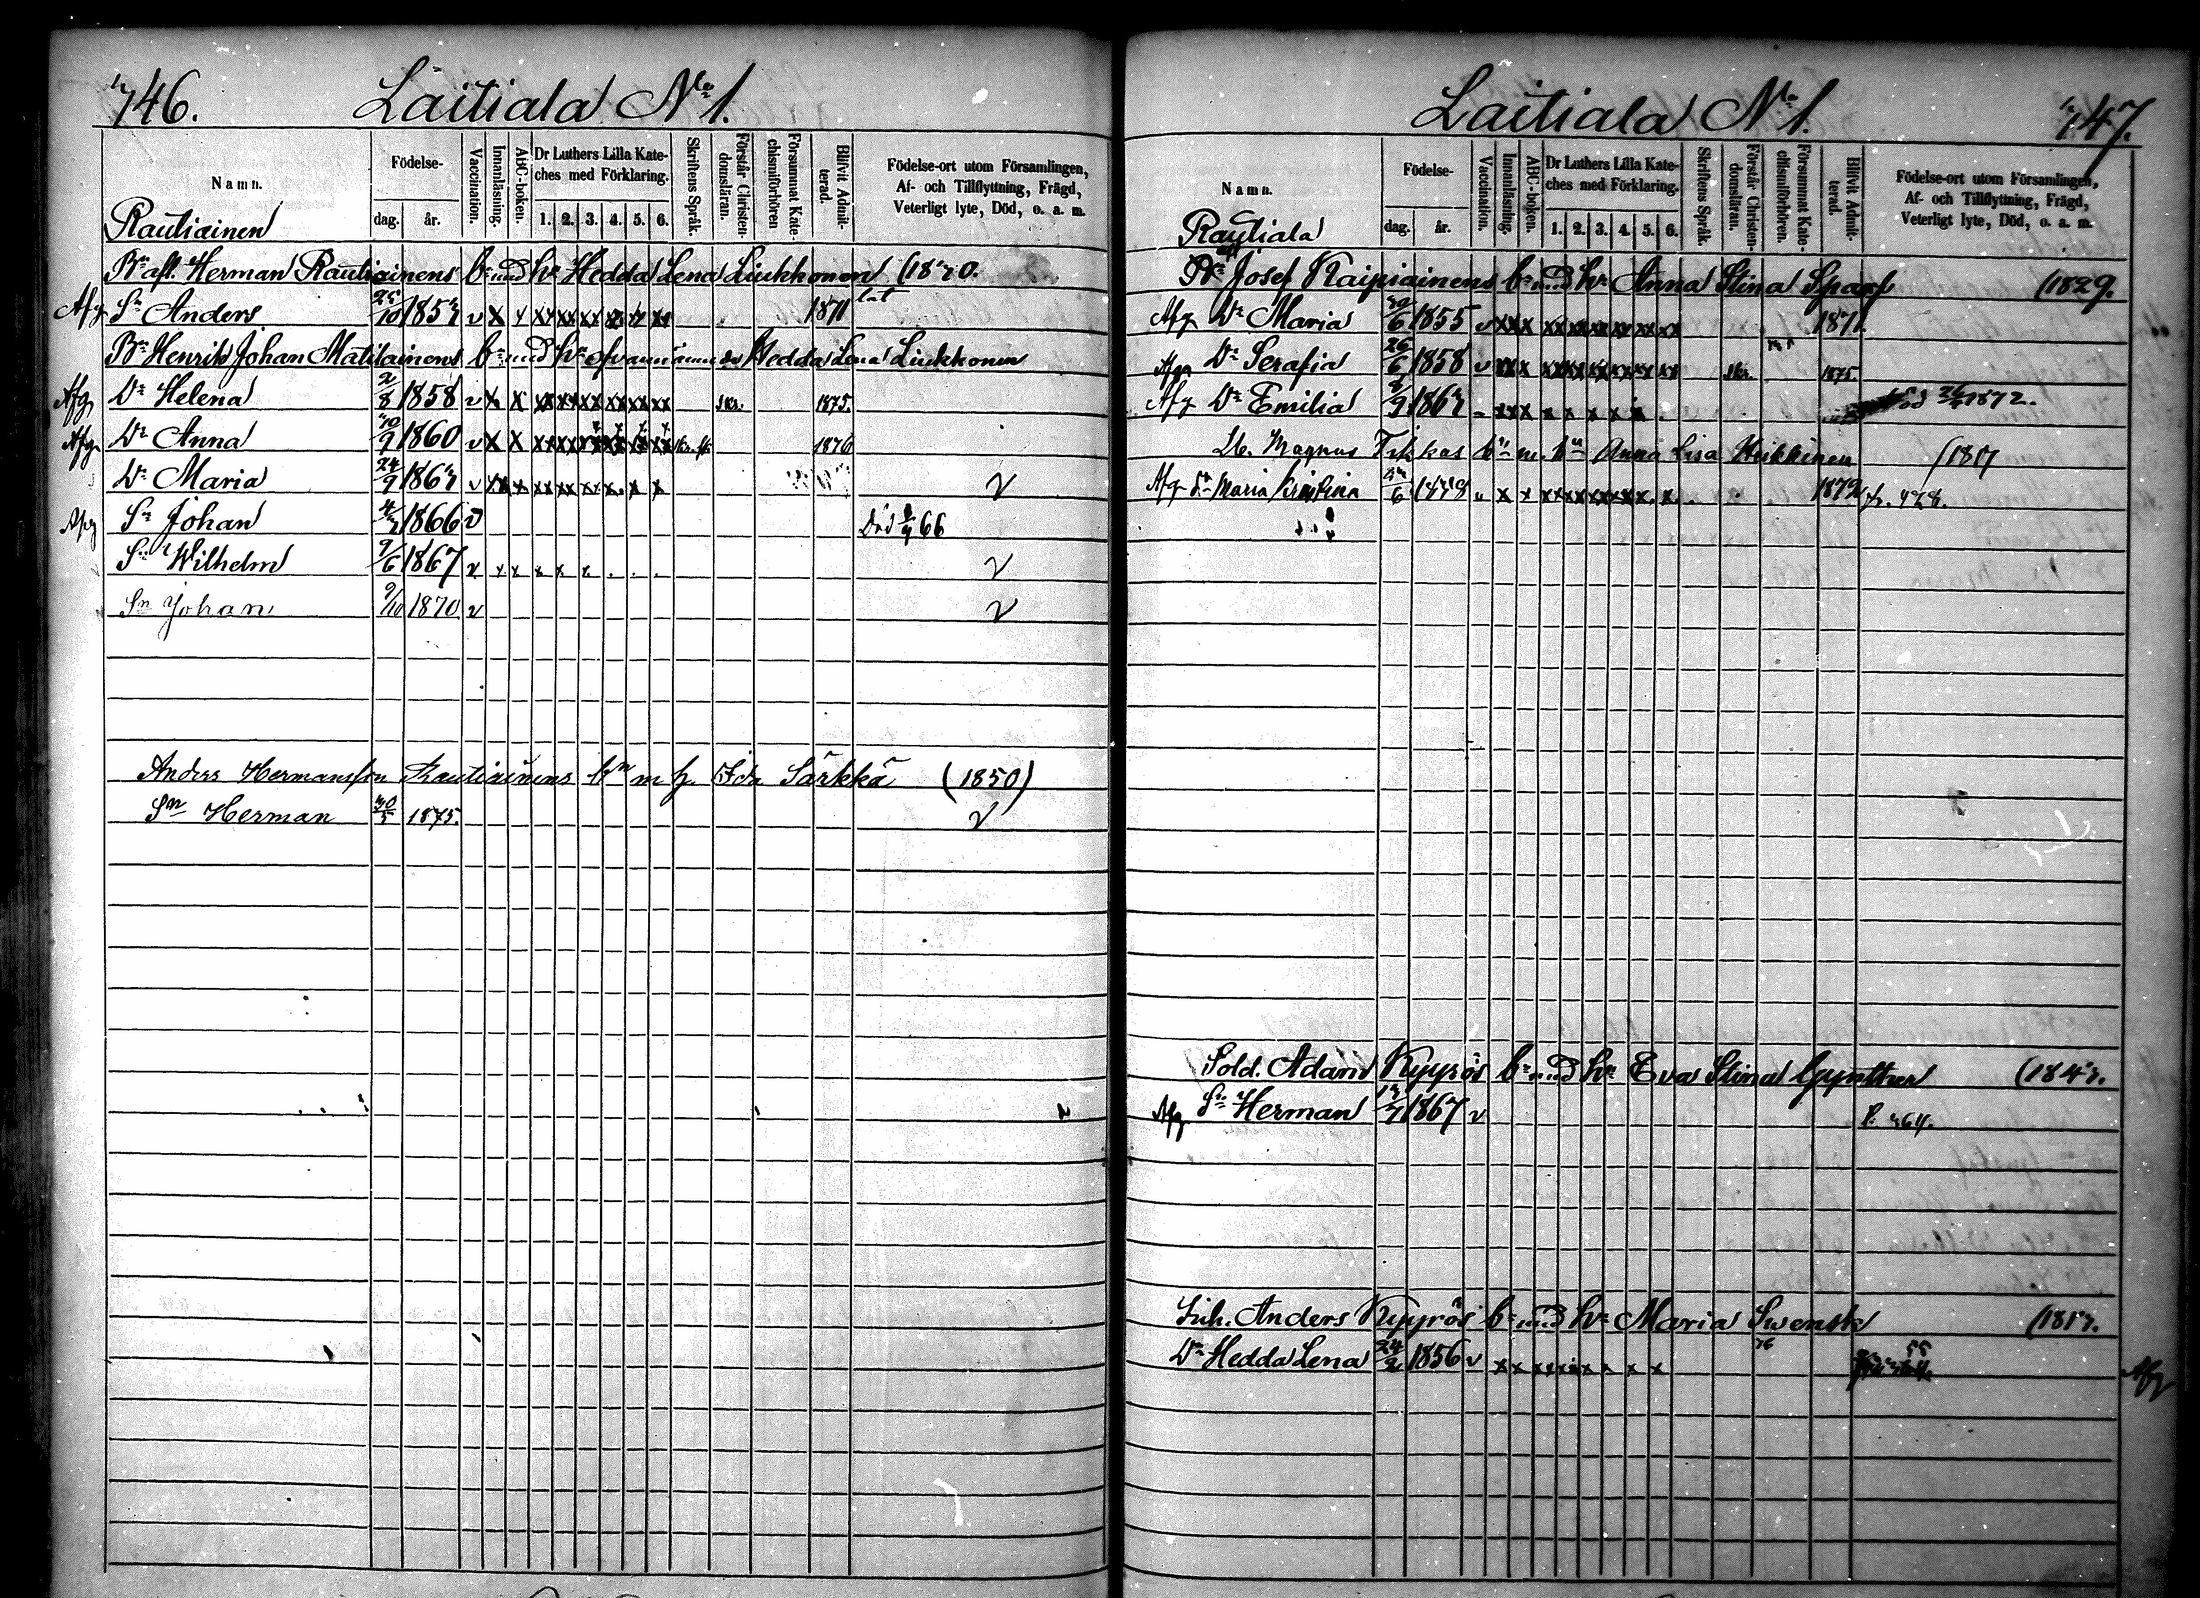 746. Laitiala No 1.
Namn. Födelse- dag. år. Vaccination. Innanläsning. ABC-boken. Dr Luthers Lilla Kateches med Förklaring. 1. 2. 3. 4. 5. 6. Skriftens Språk. Förstår Christendomsläran. Försummat Katechismiförhören Blifvit Admitterad. Födelse-ort utom Församlingen, Af- och Tillflyttning, Frägd, Veterligt lyte, Död, o. a. m.
Rautiainen
Bn afl. Herman Rautiainens bn med hu Hedda Lena Liukkonen
Afg Sn Anders 25/10 1853 v 1871
Bn Henrik Johan Matilainens bn med hu Hedda Lena Liukkonen
Afg Dr Helena 2/8 1858 v 1875.
Afg Dr Anna 1860 v 1876
Dr Maria 24/9 1863 v v
Afg Sn Johan 1866 v Död 66
Sn Wilhelm 9/6 1867 v v
Sn Johan 9/10 1870 v v
Anders Hermansson Rautiainens bn m h. Ida Särkkä (1850)
Sn Herman 30/5 1875. v
Laitiala No 1. 747.
Namn. Födelse- dag. år. Vaccination. Innanläsning. ABC-boken. Dr Luthers Lilla Kateches med Förklaring. 1. 2. 3. 4. 5. 6. Skriftens Språk. Förstår Christendomsläran. Försummat Katechismiförhören Blifvit Admitterad. Födelse-ort utom Församlingen, Af- och Tillflyttning, Frägd, Veterligt lyte, Död, o. a. m.
Rautiala
Josef Kaipiainens bn med hu Anna Stina Sparf (1829.
Afg Dr Maria 1855 v 1871.
Afg Dr Serafia 26/6 1858 v 1875.
Afg Dr Emilia 1863 Död 1872.
Magnus bn m. hu Anna Lisa Heikkinen (1817
Afg Dr Maria Kristina 1872
Sold. Adam Kyyrös bn med hu Eva Stina Gynther (1843.
Afg Sn Herman 1867 v p. 364.
Inh. Anders Kyyrös bn med hu Maria Swensk (1813.
Dr Hedda Lena 24/2 1856 v Afg